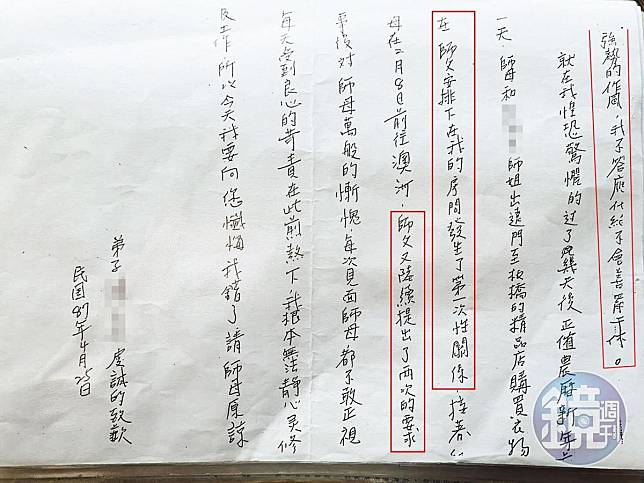 強勢的作風，我才答應代給了會善罷干休。
就在我惶恐驚懼的过了幾天後正值農曆新年
一天，師母和 師姐出遠門至板橋的精品店購買衣物
在師父安排下在我的房間發生了第一次性關係，接着
母在2月8日前往澳洲，師父又陸續提出了兩次的要求
事後对師母萬般的慚愧，每次見面師母都不敢正視
每天受到良心的苛責在此煎熬下我根本無法静心灵修
及工作所以今天我要向您懺悔我錯了請師母原諒
弟子 虔誠的致歉
民国89年4月25日
鏡週刊